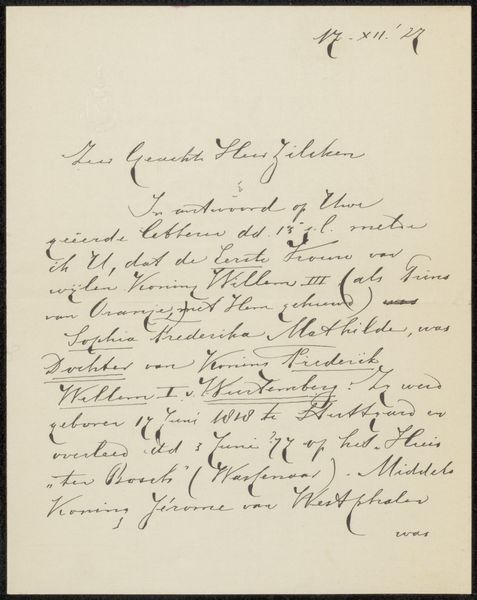 17-XII.'27
Zeer Geachte Heer Zilcken
In antwoord op Uwe
geëerde letteren dd. 13 j.l. melde
ik U, dat de Eerste Vrouw van
wijlen Koning Willem III (als Prins
van Oranje, met Hem gehuwd) was
Sophia Frederika Mathilde, was
Dochter van Koning Frederik
Willem I v. Wurtemberg. Zij werd
geboren 17 Juni 1818 te Stuttgard en
overleed dd 3 Juni '77 op het "Huis
"ten Bosch" (Wassenaar). Middels
Koning Jérome van Westphalen
was